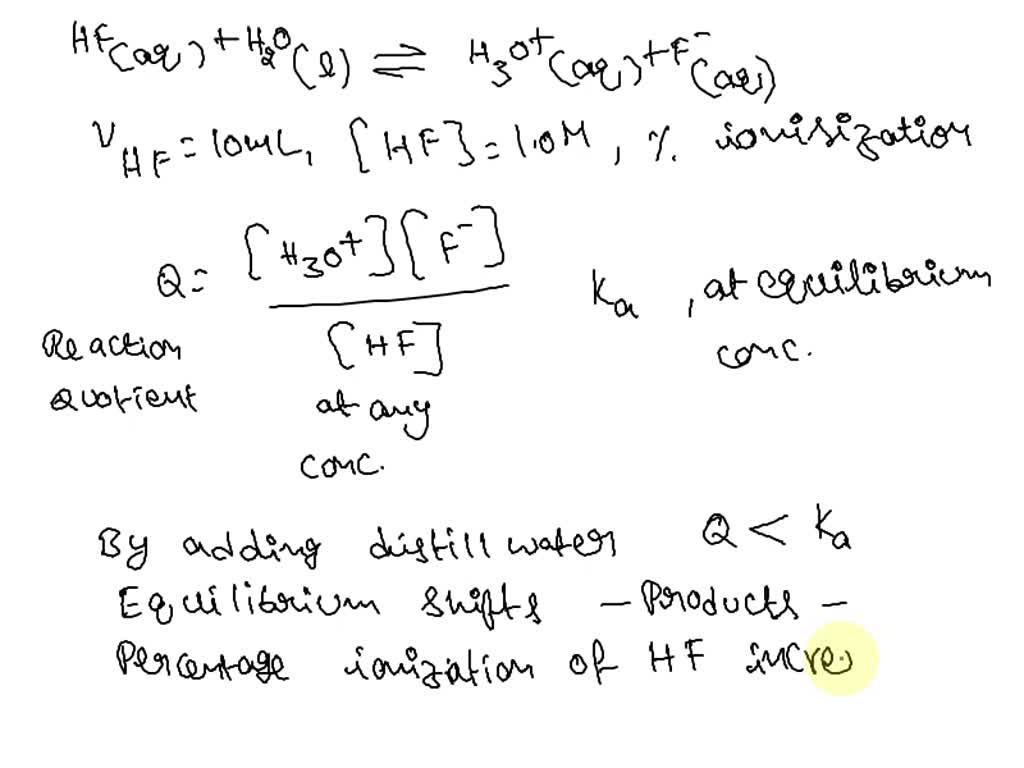 HF(aq) + H2O(l) ⇌ H3O+(aq) + F-(aq)
VHF = 10mL, [HF] = 1.0M, % ionisization
Q = [H3O+][F-] / [HF] Ka, at equilibrium
Reaction conc.
Quotient at any
conc.
By adding distill water Q < Ka
Equilibrium shifts - Products -
Percentage ionization of HF incre